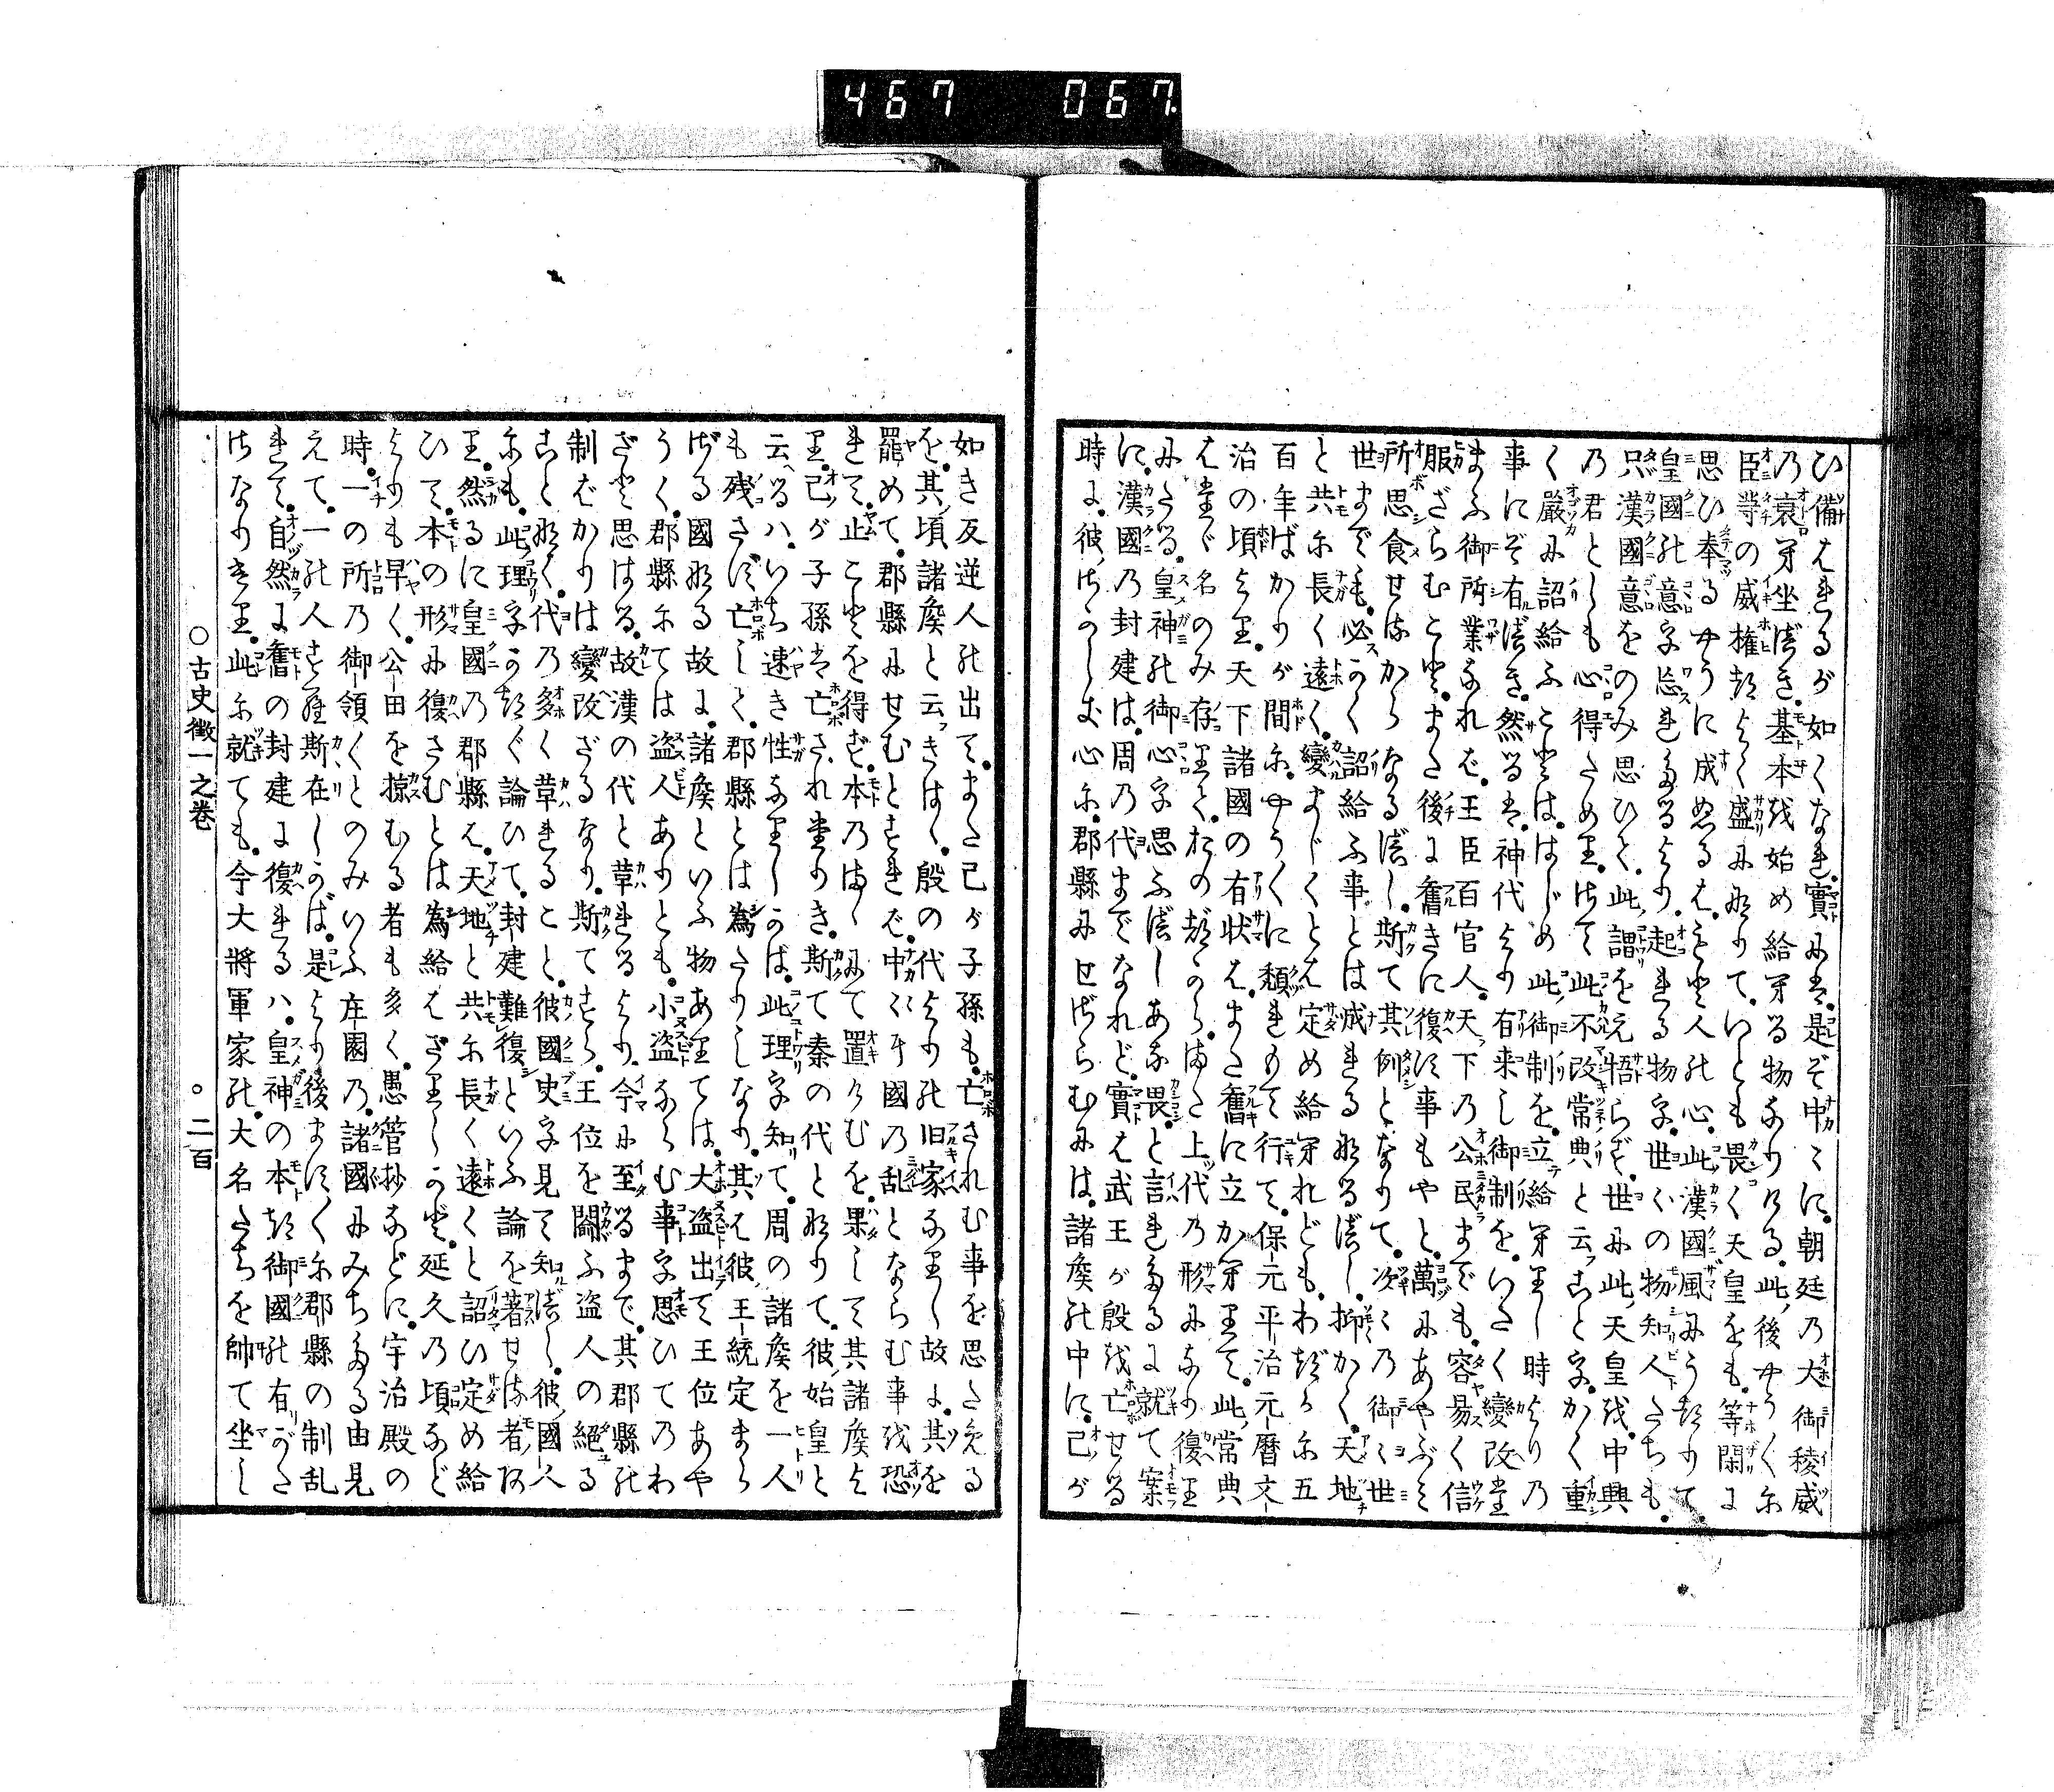 467 067
ひ備はれるが如くなれ。實には。是ぞ中〻に。朝廷乃大御稜威
乃衰へ坐べき。基本を始め給へる物なりける。此後やうくに
臣等の威權がよく盛になりて。いとも畏く天皇をも。等閑に
思ひ奉るやうに成ぬるは。もと人の心。此漢國風にうつりて。
皇國の意を忘れたるより。起れる物を。世〻の物知人たちも。
只漢國意をのみ思ひて。此謂を元悟らず。世に此天皇を。中興
乃君としも心得ためり。さて此不改常典と云ことを。かく重
く嚴に詔給ふことは。はじめ此御制を。立給へりし時よりの
事にぞ有べき。然るは。神代より有來し御制を。いたく變改た
まふ御所業なれば。王臣百官人。天下乃公民までも。容易く信
服ざらむこと。また後に舊きに復す事もやと。萬にあやぶみ
所思食せばかりなるべし。斯て其例となりて。次〻乃御〻世
世までも。必かく詔給ふ事とは成れるなるべし。抑かく。天地
と共に長く遠く。變まじくとは定め給へれども。わづかに五
百年ばかりが間に。やうくに頽れもて行て。保元平治元曆文
治の頃より。天下諸國の有狀は。また舊に立かへりて。此常典
はたゞ名のみ存りて。おのづから。また上代乃形になり復り
にたる。皇神の御心を思ふべしあな畏。と言れたるに就て案
に。漢國乃封建は。周乃代までなれど。實は武王が殷を亡せる
時に。彼さかしき心に。郡縣にせばらむには。諸矦の中に。己が
如き反逆人の出て。また己が子孫も。亡されむ事を思たる
を。其頃諸矦と云つきはく。殷の代よりの旧家なりし故に。其を
罷めて。郡縣にせむとすれば。中〻に國乃乱とならむ事を恐
れて。止ことを得ず。本乃まゝにて置けむを。果して其諸矦よ
り。己が子孫は亡されたりき。斯て秦の代となりて。彼始皇と
云へるハ。いち速き性なりしかば。此理を知て。周の諸矦を一人
も殘さず。亡して。郡縣とは爲たりしなり。其は彼王統定まら
ざる國なる故に。諸矦といふ物ありては。大盗出て王位あや
うく。郡縣にては盗人ありとも。小盗ならむ事を思ひて乃わ
ざと思はる。故漢の代と革れるより。今に至るまで。其郡縣の
制ばかりは變改ざるなり。斯てすら。王位を闚ふ盗人の絕る
こと無く。代乃多く革れること。彼國史を見て知べし。彼國人
にも。此理をかつ〴〵論ひて。封建難復といふ論を著せる者あ
り。然るに皇國乃郡縣は。天地と共に長く遠くと詔ひ定め給
ひて。本の形に復さむとは爲給はざりしかど。延久乃頃など
よりも早く。公田を掠むる者も多く。愚管抄などに。宇治殿の
時。一の所乃御領くとのみいふ庄園乃。諸國にみちたる由見
えて。一の人すら斯在しかば。是より後ますくに郡縣の制乱
れて。自然に舊の封建に復れるハ。皇神の本つ御國の有がた
さなりけり。此に就ても。今大將軍家の。大名たちを帥て坐し
○古史徴一之卷 。二百